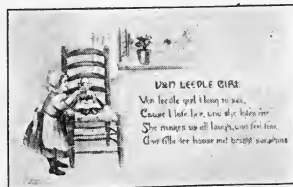 VON LEEDLE GIRL
Von leedle girl I long to see,
Cause I lofe her, und she lofes me
She makes us all laugh, und feel fine,
Und fills der house mit bright sunshine